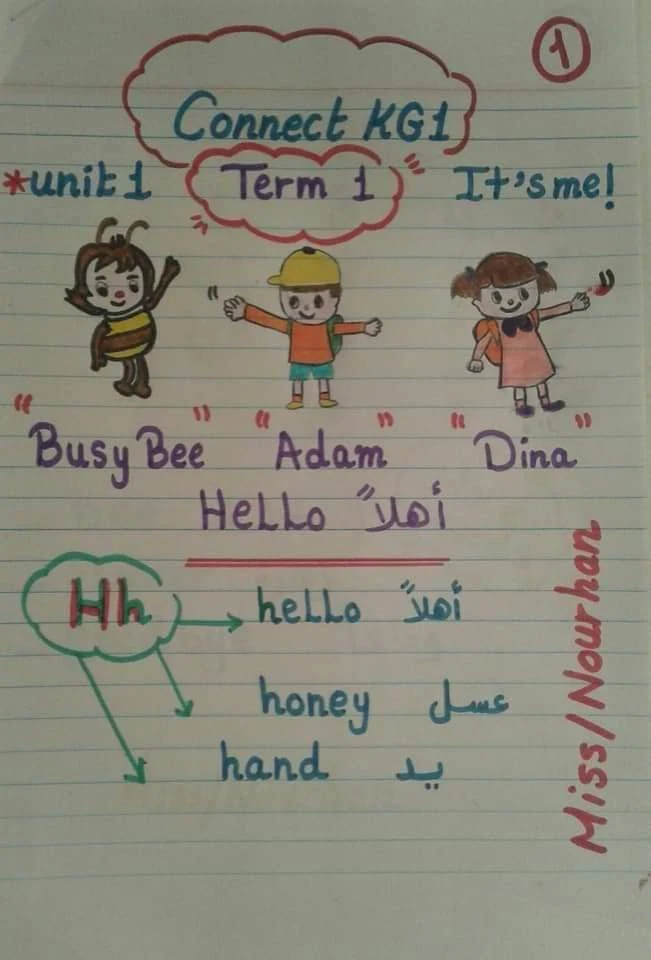 1
Connect KG1
*unit 1 Term 1 It's me!
"Busy Bee" "Adam" "Dina"
Hello أهلاً
Hh
hello أهلاً
honey عسل
hand يد
Miss/Nourhan